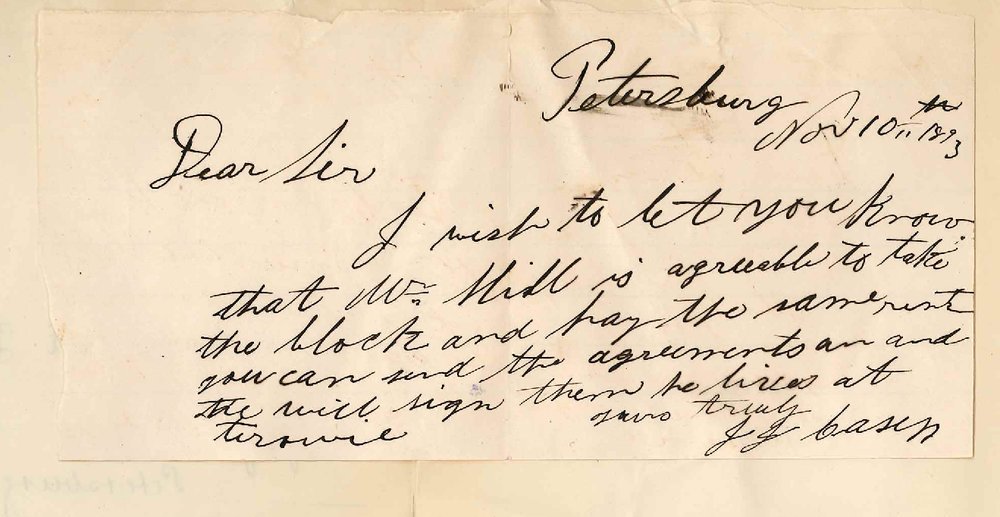 Petersburg
Nov 10th 1893
Dear Sir
I wish to let you know
that Mr Hill is agreeable to take
the block and pay the same rent
you can send the agreements an and
he will sign them he lives at
terowie
yours truly
J J Casey